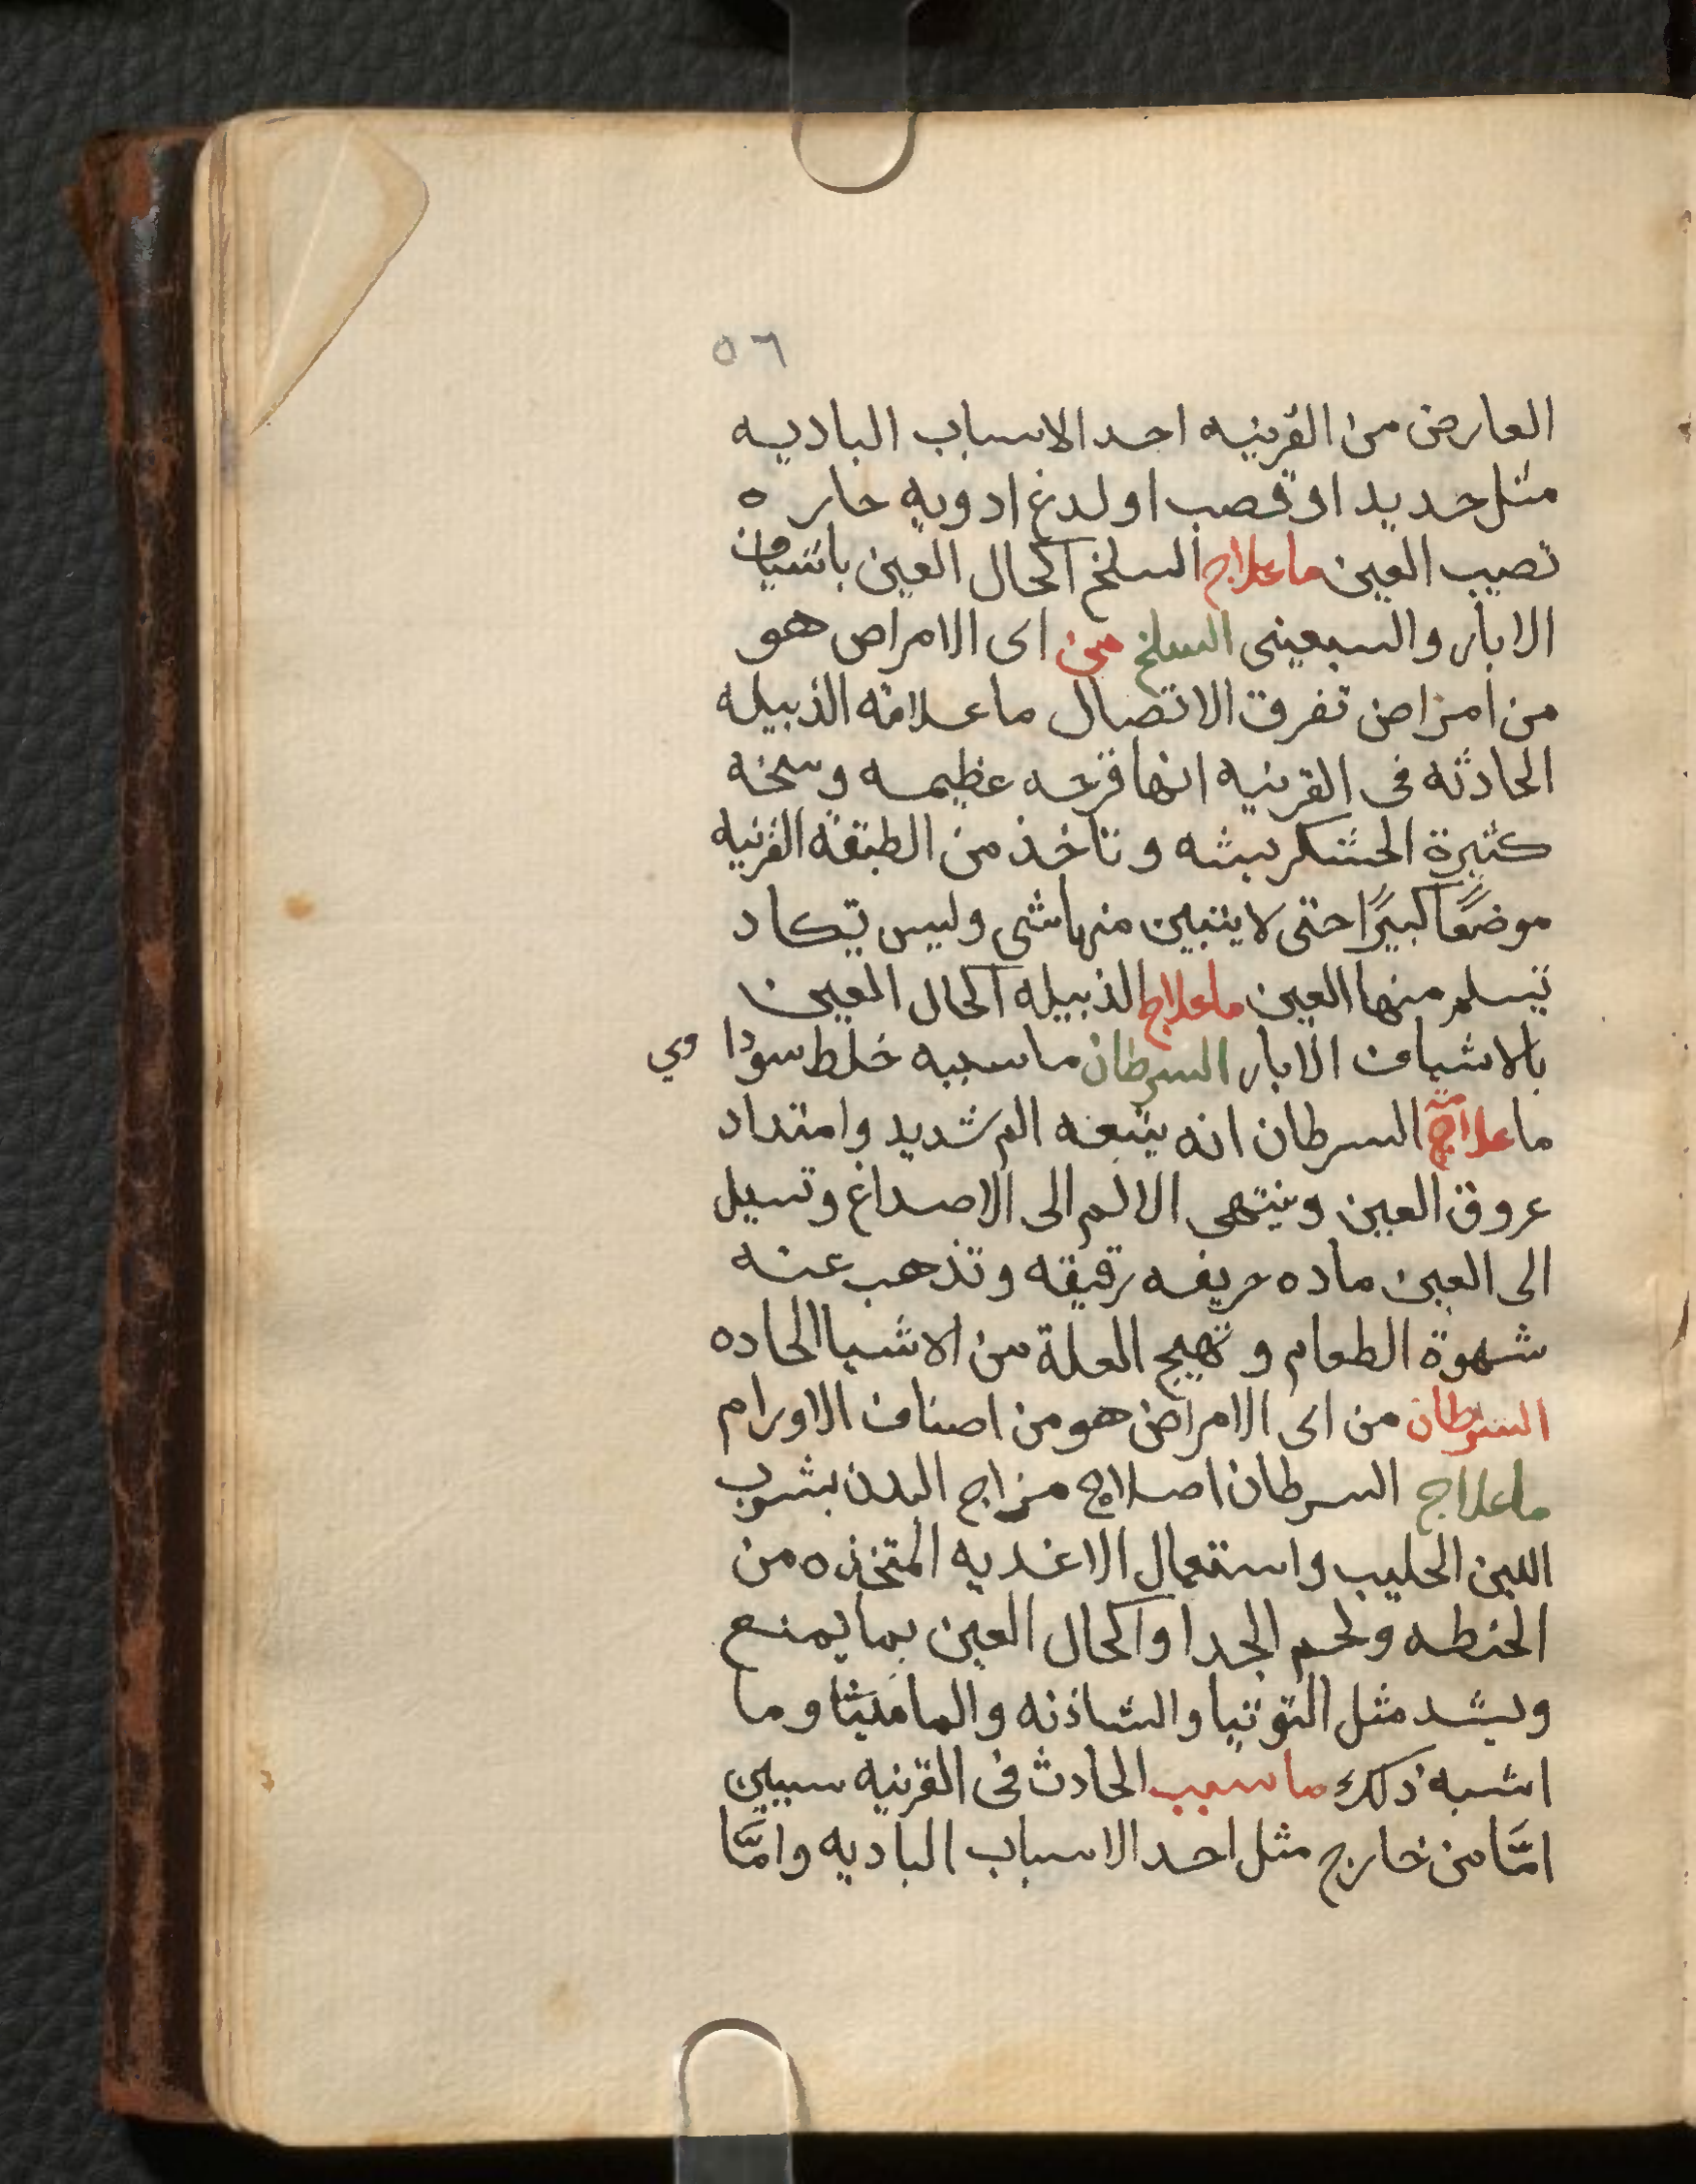 ٥٦
العارض من القرنيه احد الاسباب الباديه
مثل حديد او قصب او لدغ ادويه حاره
تصيب العين ما علاج السلخ اكحال العين باشياف
الابار والسبعينى السلخ من اى الامراض هو
من امراض تفرق الاتصال ما علامة الذبيله
الحادثه فى القرنيه انها قرحه عظيمه وسخه
كثيرة الخشكريشه وتاخذ من الطبقة القرنيه
موضعًا كبيرًا حتى لا يتبين منها شى وليس تكاد
تسلم منها العين ما علاج الذبيله اكحال العين
بالاشياف الابار السرطان ما سببه خلط سوداوي
ما علاج السرطان انه يتبعه الم شديد وامتداد
عروق العين وينتهى الالم الى الاصداغ وتسيل
الى العين ماده حريفه رقيقه وتذهب عنه
شهوة الطعام وتهيج العلة من الاشيا الحاده
السرطان من اى الامراض هو من اصناف الاورام
ما علاج السرطان اصلاح مزاج البدن بشرب
اللبن الحليب واستعمال الاغديه المتخذه من
الحنطه ولحم الجدا واكحال العين بما يمنع
ويشد مثل التوتيا والشاذنه والماميثا وما
اشبه ذلك ما سبب الحادث فى القرنيه سببين
امَّا من خارج مثل احد الاسباب الباديه وامَّا